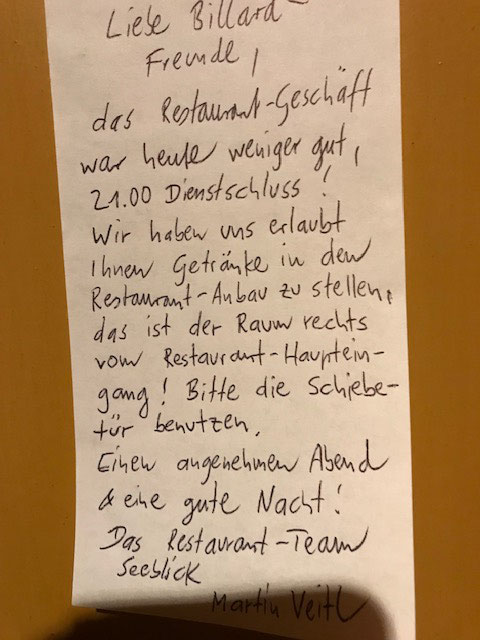 Liebe Billard-
Freunde,
das Restaurant-Geschäft
war heute weniger gut,
21.00 Dienstschluss!
Wir haben uns erlaubt
Ihnen Getränke in den
Restaurant-Anbau zu stellen,
das ist der Raum rechts
vom Restaurant-Hauptein-
gang! Bitte die Schiebe-
tür benutzen.
Einen angenehmen Abend
& eine gute Nacht!
Das Restaurant-Team
Seeblick
Martin Veitl